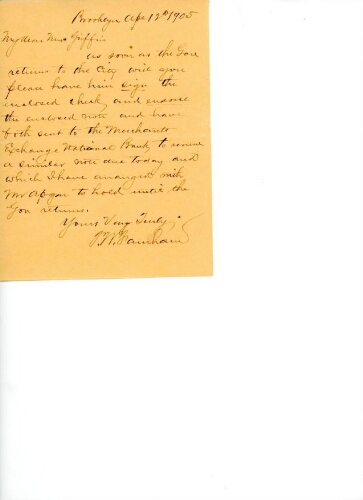 Brooklyn Apr 12th 1905
My dear Mr Griffin
as soon as the Gov
returns to the City will you
please have him sign the
enclosed check and endorse
the enclosed note and have
both sent to the Merchants
Exchange National Bank to renew
a similar note due today and
which I have arranged with
Mr Apgar to hold until the
Gov returns.
Yours Very Truly,